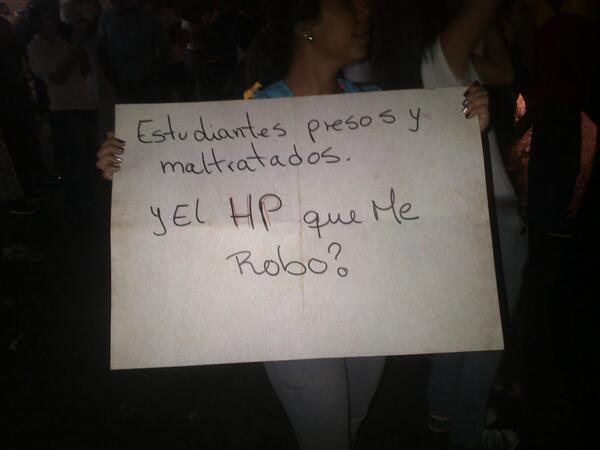 Estudiantes presos y
maltratados.
y El HP que Me
Robo?